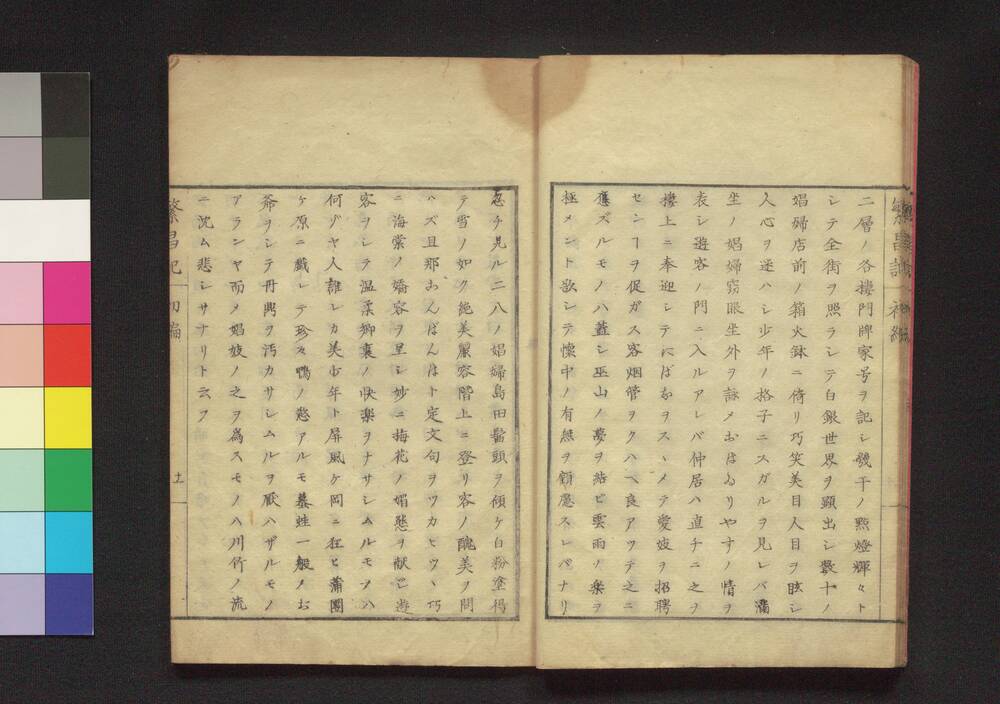 繁昌誌 初編
二層ノ各樓門牌家号ヲ記シ幾干ノ點燈輝々ト
シテ全街ヲ照ラシテ白銀世界ヲ顕出シ數十ノ
娼婦店前ノ箱火鉢ニ倚リ巧笑美目人目ヲ眩シ
人心ヲ迷ハシ少年ノ格子ニスガルヲ見レバ滿
坐ノ娼婦窃眼坐外ヲ詠メおはゐりやすノ情ヲ
表シ遊客ノ門ニ入ルアレバ仲居ハ直チニ之ヲ
樓上ニ奉迎シテにばなヲスヽメテ愛妓ヲ招聘
センヿヲ促ガス客烟管ヲクハヘ良アツテ之ニ
應ズルモノハ蓋シ巫山ノ夢ヲ結ビ雲雨ノ楽ヲ
極メント欲シテ懐中ノ有無ヲ顧慮スレバナリ
忽チ見ル二八ノ娼婦島田髷頭ヲ傾ケ白粉塗得
テ雪ノ如ク絶美麗容階上ニ登リ客ノ醜美ヲ問
ハズ且那おんばんはト定文句ヲツカヒツヽ巧
ニ海棠ノ嬌容ヲ呈シ妙ニ梅花ノ媚態ヲ献ジ遊
客ヲシテ温柔郷裏ノ快楽ヲナサシムルモノハ
何ゾヤ人誰レカ美少年ト屏風ケ岡ニ狂ヒ蒲團
ケ原ニ戯レテ珍々鴨ノ慾アルモ蟇蛙一般ノお
爺ヲシテ丹興ヲ汚カサシムルヲ厭ハザルモノ
アランヤ而メ娼妓ノ之ヲ為スモノハ川竹ノ流
ニ沈ム悲シサナリト云フ
繁昌記 初編 十一